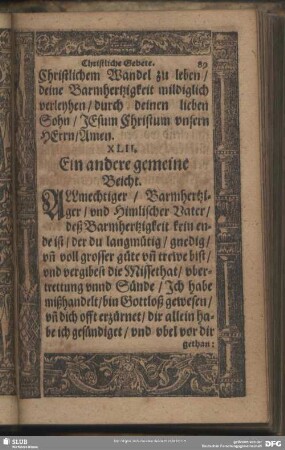 Christliche Gebete. 89
Christlichem Wandel zu leben /
deine Barmhertzigkeit mildiglich
verleyhen / durch deinen lieben
Sohn / JEsum Christum vnsern
HErrn / Amen.
XLII.
Ein andere gemeine
Beicht.
ALlmechtiger / Barmhertzi-
ger / vnd Himlischer Vater /
deß Barmhertzigkeit kein en-
de ist / der du langmütig / gnedig /
vñ voll grosser güte vñ trewe bist /
vnd vergibest die Missethat / vber-
trettung vnnd Sünde / Ich habe
mißhandelt / bin Gottloß gewesen /
vñ dich offt erzürnet / dir allein ha-
be ich gesündiget / vnd vbel vor dir
gethan:
SLUB
DFG